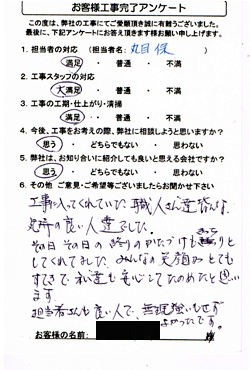 お客様工事完了アンケート
この度は、弊社の工事にてご愛顧頂き誠に有難うございました。
最後に、下記アンケートにお答え頂きます様お願い申し上げます。
1. 担当者の対応 (担当者名: 丸目 保)
満足 ・ 普通 ・ 不満
2. 工事スタッフの対応
大満足 ・ 普通 ・ 不満
3. 工事の工期・仕上がり・清掃
満足 ・ 普通 ・ 不満
4. 今後、工事をお考えの際、弊社に相談しようと思いますか?
思う ・ どちらでもない ・ 思わない
5. 弊社は、お知り合いに紹介しても良いと思える会社ですか?
思う ・ どちらでもない ・ 思わない
6. その他 ご意見・ご希望等ございましたらお聞かせ下さい
工事に入ってくれていた、職人さん達皆んな、
の良い人達でした。
その日 その日の 終りのかたづけも
してくれてました。みんなの笑顔が とても
すてきで 私達も 安心してたのめたと思い
ます。
担当者さんも良い人で、無理強いもせず
よかったです。
お客様の名前: 様